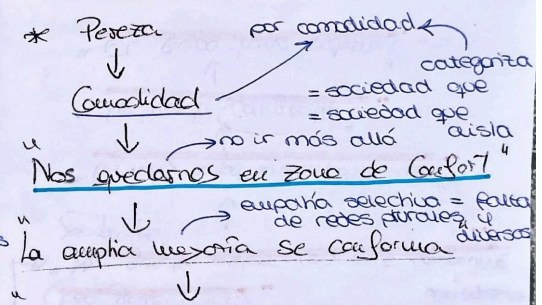 * Pereza
por comodidad
categoriza
Comodidad
= sociedad que
= sociedad que
aisla
→ no ir más allá
"Nos quedamos en zona de Confort"
empatía selectiva = falta
de redes plurales y
diversas
"La amplia mayoría se conforma
"